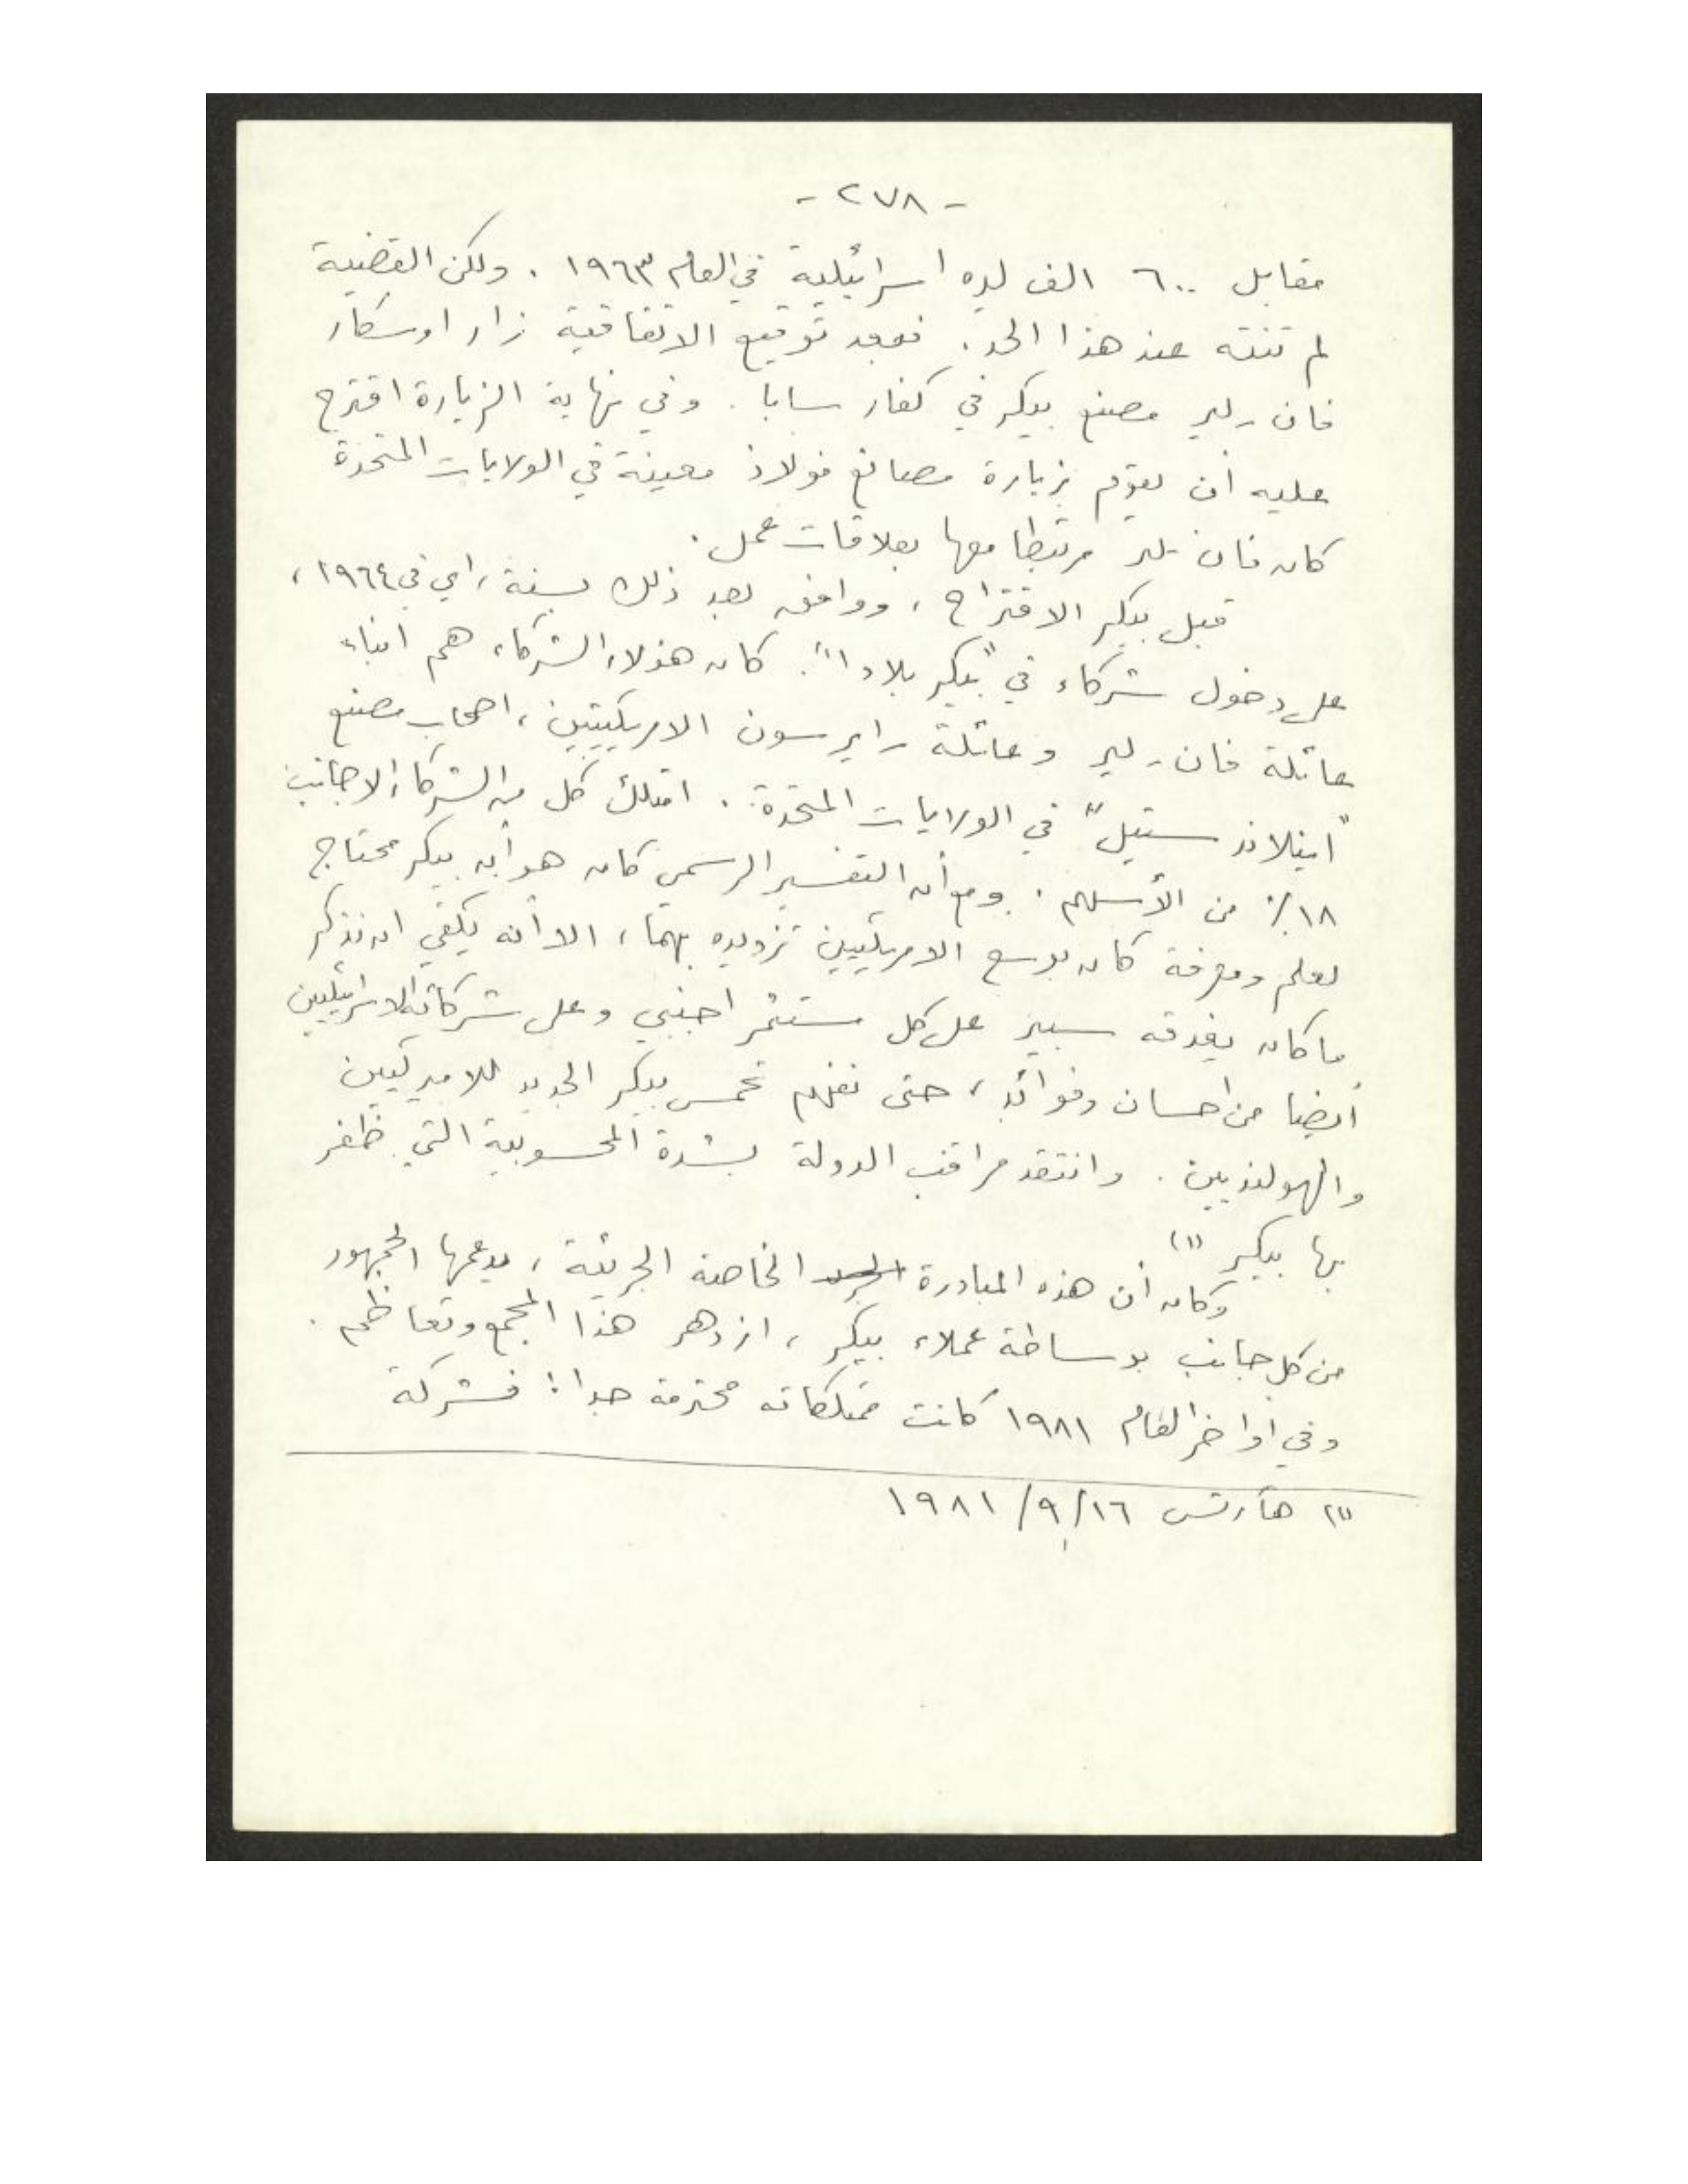 - ٢٧٨ -
مقابل ٦٠٠ الف ليره اسرائيلية في العام ١٩٦٣ . ولكن القضية
لم تنته عند هذا الحد . فبعد توقيع الاتفاقية زار اوسكار
فان رلير مصنع بيكر في كفار سابا . وفي نهاية الزيارة اقترح
عليه أن يقوم بزيارة مصانع فولاذ معينة في الولايات المتحدة
كان فان رلير مرتبطا معها بعلاقات عمل .
قبل بيكر الاقتراح ، ووافق بعد ذلك بسنة ، اي في ١٩٦٤ ،
على دخول شركاء في "بيكر بلادا" . كان هؤلاء الشركاء هم ابناء
عائلة فان رلير وعائلة رايرسون الامريكيتين ، اصحاب مصنع
"اينلاند ستيل" في الولايات المتحدة . امتلك كل من الشركاء الاجانب
١٨٪ من الأسهم . ومع أن التفسير الرسمي كان هو أن بيكر محتاج
لعلم ومعرفة كان بوسع الامريكيين تزويده بهما ، الا أنه يكفي ان نتذكر
ما كان يغدقه سبير على كل مستثمر اجنبي وعلى شركائه الاسرائيليين
أيضا من احسان وفوائد ، حتى نفهم تحمس بيكر الجديد للاميركيين
والهولنديين . وانتقد مراقب الدولة بشدة المحسوبية التي ظفر
بها بيكير (١)
وكان أن هذه المبادرة الخاصة الجريئة ، يدعمها الجمهور
من كل جانب بوساطة عملاء بيكر ، ازدهر هذا المجمع وتعاظم .
وفي اواخر العام ١٩٨١ كانت ممتلكاته محترمة جدا : فشركة
(١) هآرتس ١٦/٩/١٩٨١